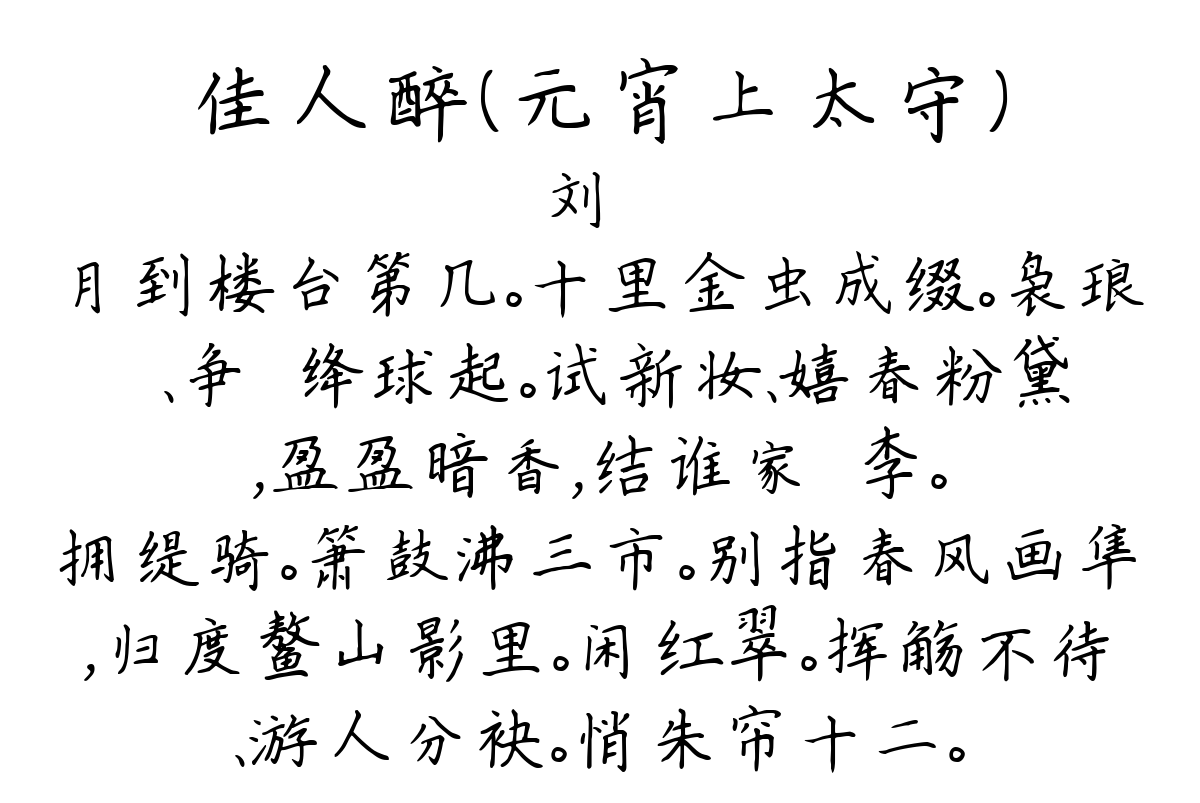 佳人醉(元宵上太守)
刘
月到楼台第几。十里金虫成缀。袅琅
、争 绛球起。试新妆、嬉春粉黛
,盈盈暗香,结谁家 李。
拥缇骑。箫鼓沸三市。别指春风画隼
,归度鳌山影里。闲红翠。挥觞不待
、游人分袂。悄朱帘十二。